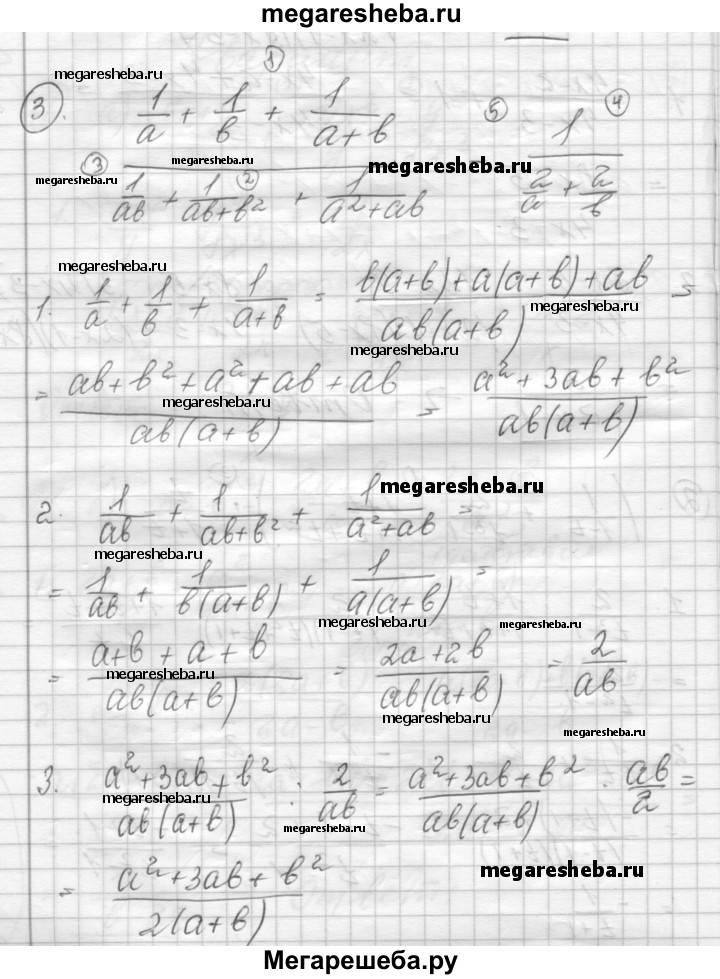 megaresheba.ru
megaresheba.ru
3. 1/a + 1/b + 1/(a+b) ① ⑤ ④
③ megaresheba.ru megaresheba.ru
megaresheba.ru 1/ab + 1/(ab+b²) ② + 1/(a²+ab) - 1/(2/a + 2/b)
megaresheba.ru
1. 1/a + 1/b + 1/(a+b) = (b(a+b)+a(a+b)+ab)/(ab(a+b)) =
megaresheba.ru
megaresheba.ru
= (ab+b²+a²+ab+ab)/(ab(a+b)) = (a²+3ab+b²)/(ab(a+b))
megaresheba.ru
megaresheba.ru
2. 1/ab + 1/(ab+b²) + 1/(a²+ab) =
megaresheba.ru
= 1/ab + 1/(b(a+b)) + 1/(a(a+b)) =
megaresheba.ru megaresheba.ru
= (a+b+a+b)/(ab(a+b)) = (2a+2b)/(ab(a+b)) = 2/ab
megaresheba.ru megaresheba.ru
3. (a²+3ab+b²)/(ab(a+b)) : 2/ab = (a²+3ab+b²)/(ab(a+b)) · ab/2 =
megaresheba.ru
megaresheba.ru
= (a²+3ab+b²)/(2(a+b))
megaresheba.ru
Мегарешеба.ру